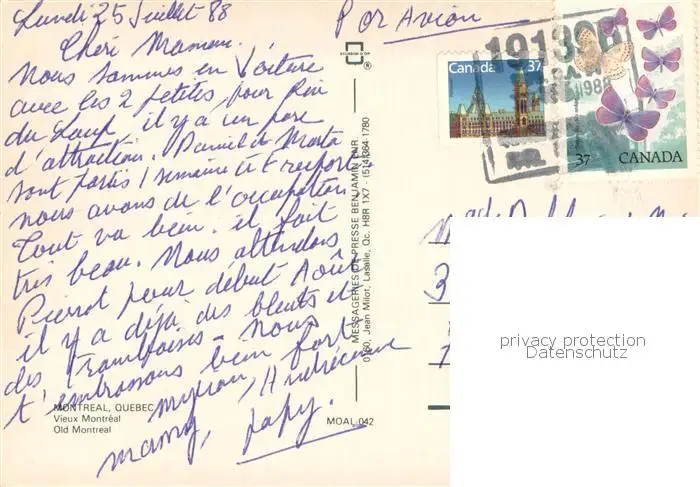 Lundi 25 Juillet 88
Par Avion
Cheri Maman.
Nous sommes en Voiture
avec les 2 petites, pour
du Loup, il y a un parc
d'attraction. Daniel et Marta
sont partis 1 semaine
nous avons de l'occupation
Tout va bien. il fait
très beau. Nous attendons
Pierrot pour début Août
il y a déjà des bleuets et
des Framboises - Nous
t'embrassons bien fort,
Myriam,
mamy, papy.
ECUSSON D'OR
®
MESSAGERIES DE PRESSE BENJAMIN ENR
0160, Jean Milot, Lasalle, Qc. H8R 1X7 - (514) 364-1780
Canada 37
1988
37 CANADA
3
privacy protection
Datenschutz
MONTREAL, QUEBEC
Vieux Montréal
Old Montreal
MOAL 042